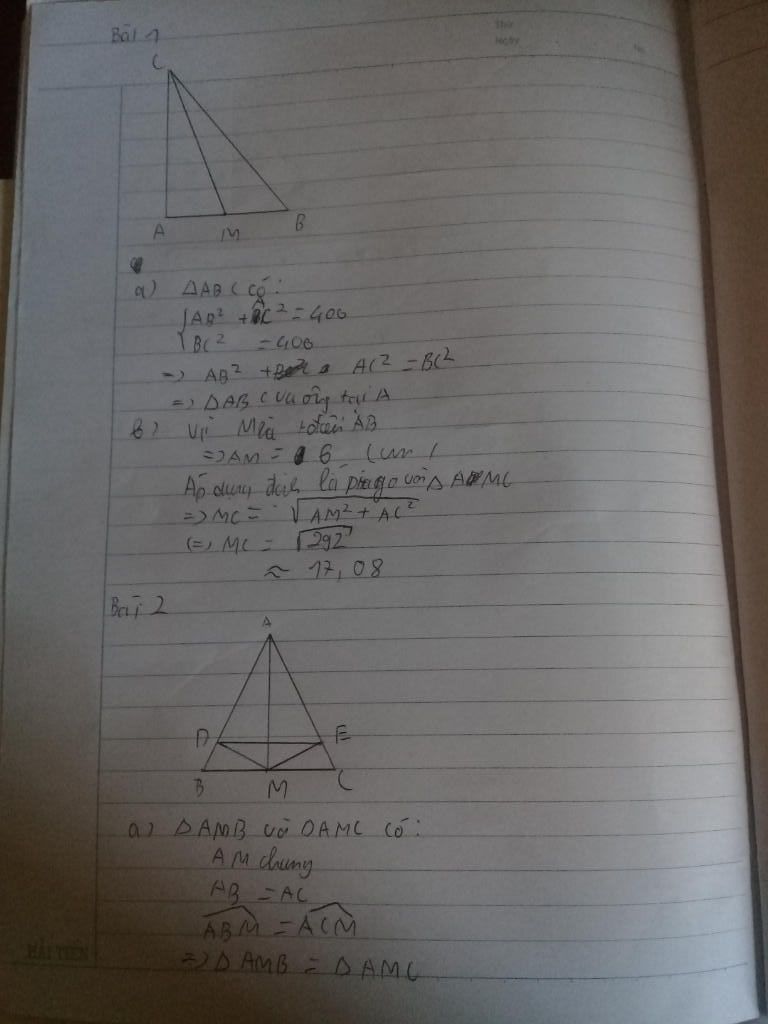 Thứ
Ngày
No.
Bài 1
C
A M B
a) ΔABC có:
{AB² + AC² = 400
BC² = 400
=> AB² + AC² = BC²
=> ΔABC vuông tại A
b) Vì M là t điểm AB
=> AM = 6 (cm)
Áp dụng định lí pitago với Δ AMC
=> MC = √AM² + AC²
(=) MC = √292
≈ 17,08
Bài 2
A
D E
B M C
a) ΔAMB và ΔAMC có:
AM chung
AB = AC
ABM = ACM
=> ΔAMB = ΔAMC
HẢI TIẾN